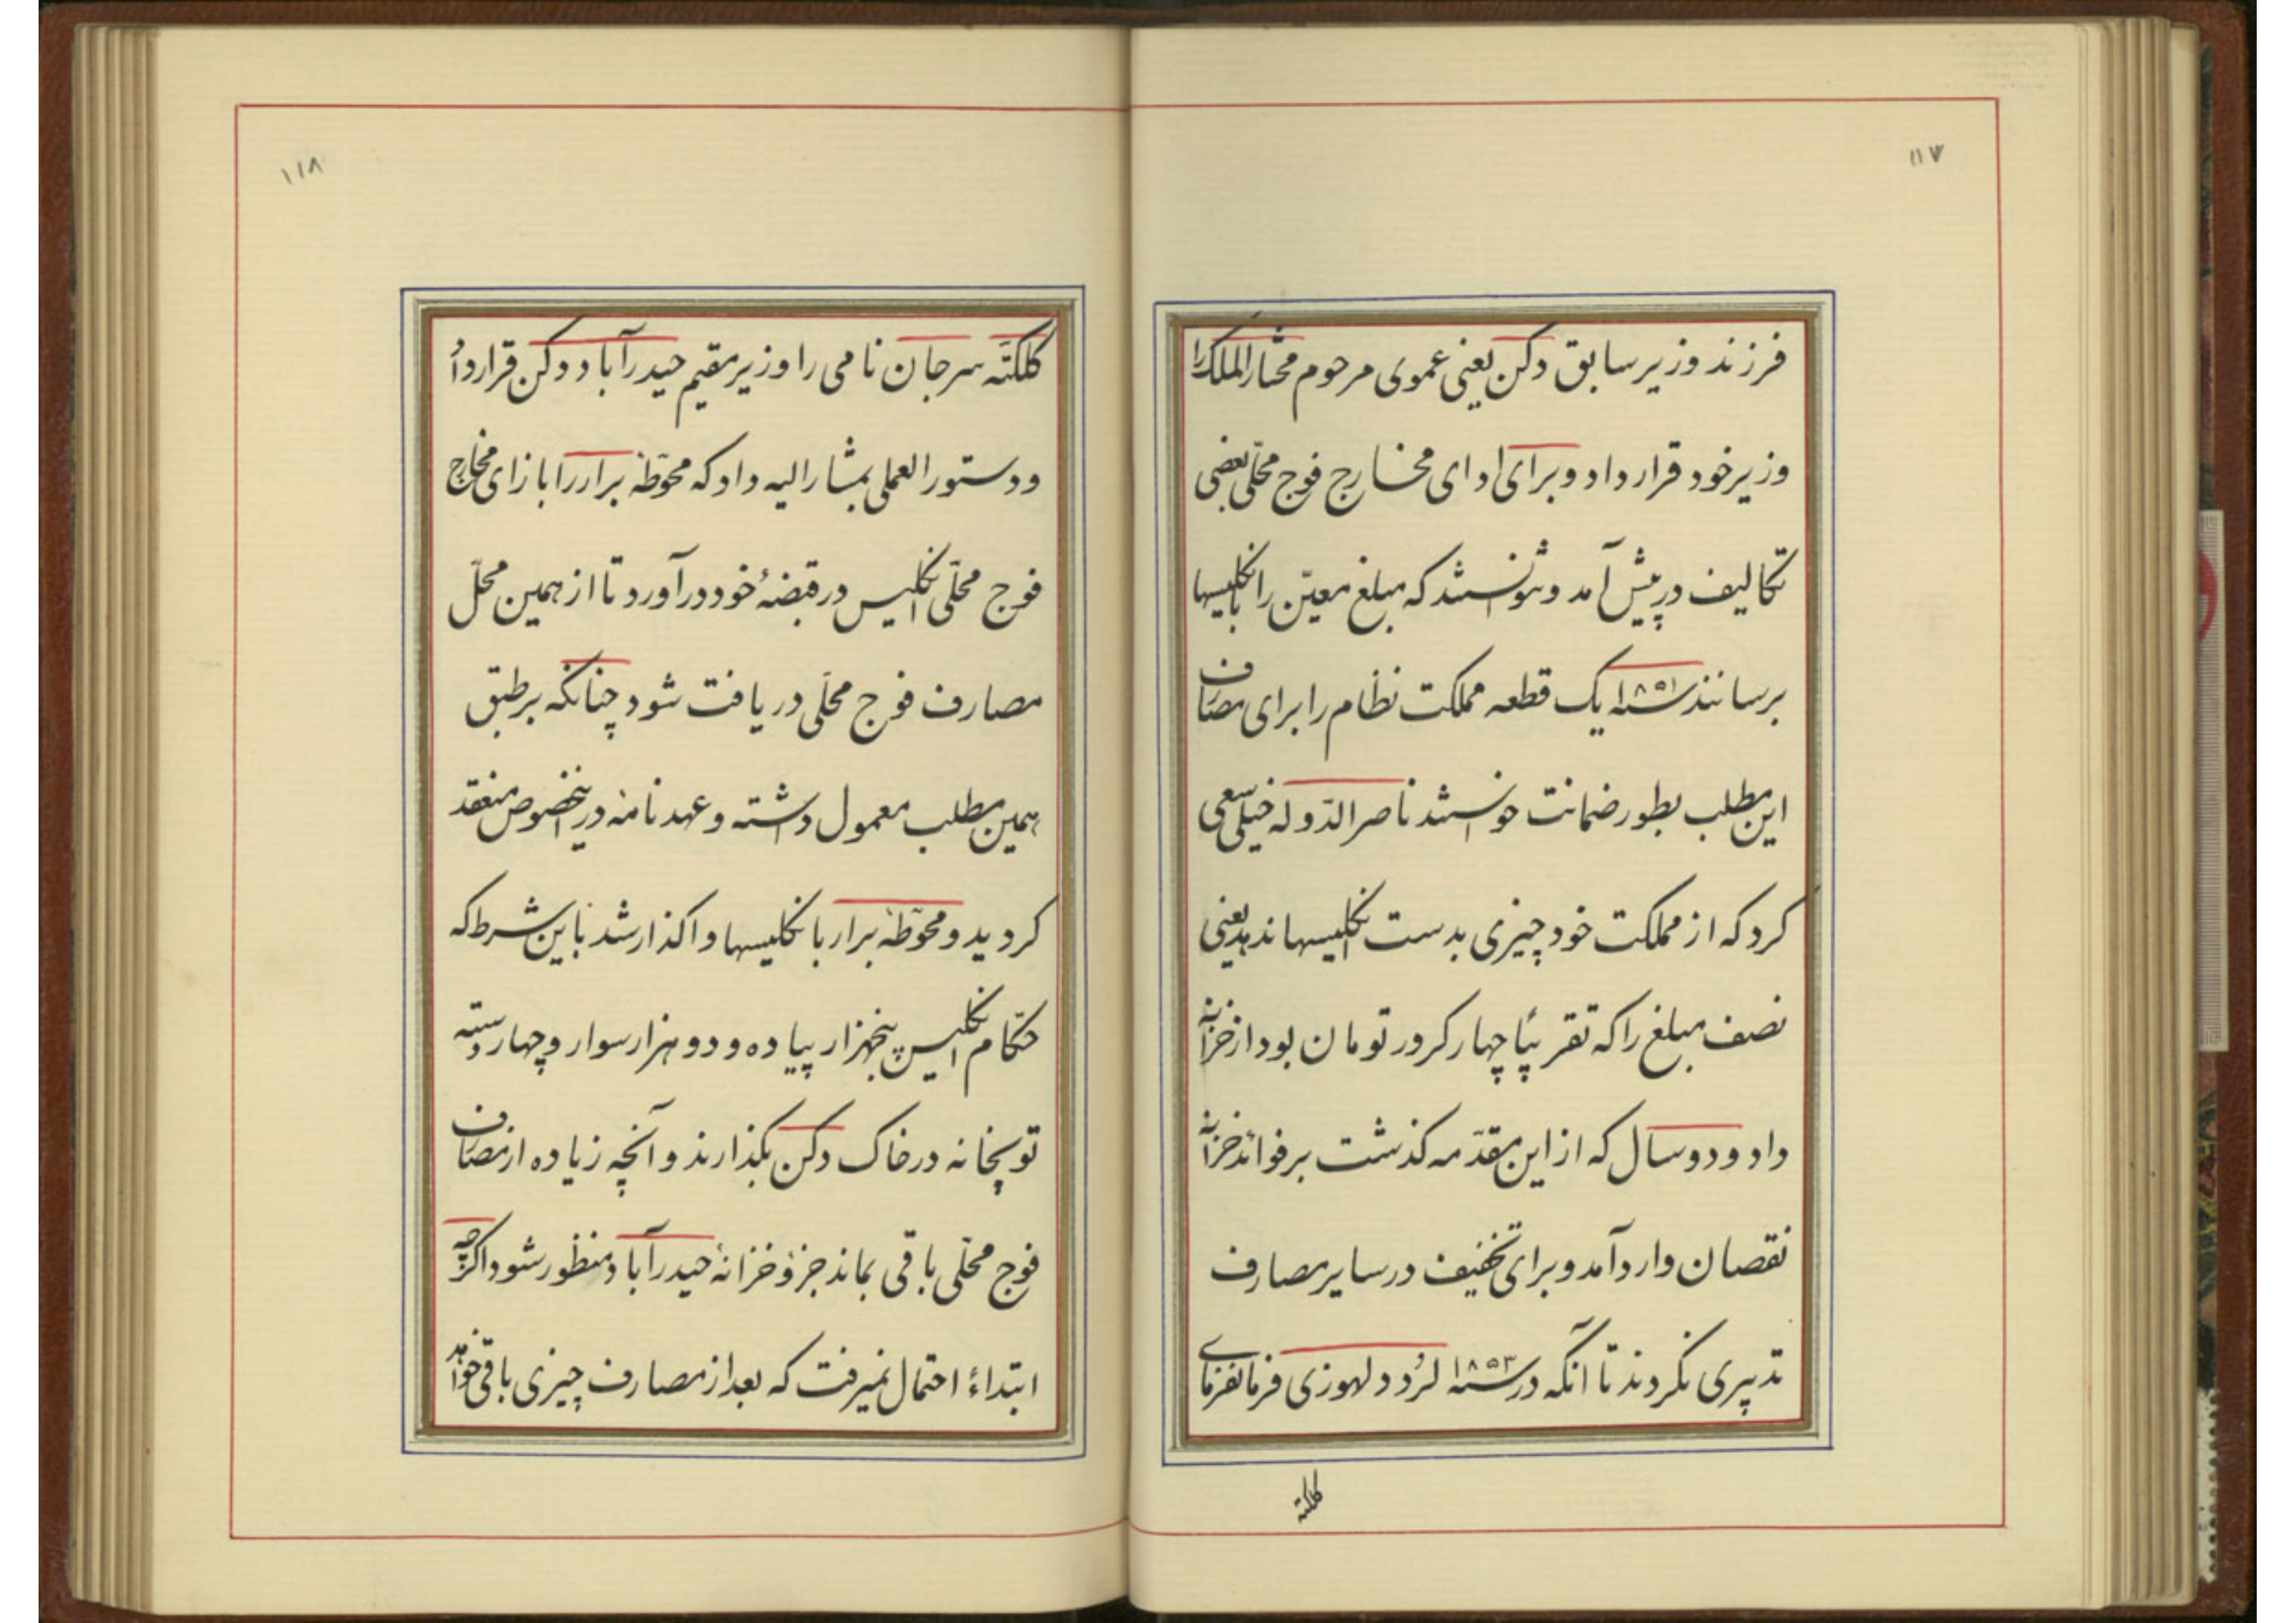 ۱۱۷
فرزند وزیر سابق دکن یعنی عموی مرحوم مختار الملک را
وزیر خود قرار داد و برای ادای مخارج فوج محلّی بعضی
تکالیف در پیش آمد و نتوانستند که مبلغ معیّن را بانکلیسها
برسانند سنه ۱۸۵۱ یک قطعه مملکت نظام را برای مصارف
این مطلب بطور ضمانت خواستند ناصر الدّوله خیلی سعی
کرد که از مملکت خود چیزی بدست انکلیسها ندهد یعنی
نصف مبلغ را که تقریبًا چهار کرور تومان بود از خزانه
داد و دو سال که از این مقدّمه کذشت بر فوائد خزانه
نقصان وارد آمد و برای تخفیف در سایر مصارف
تدبیری نکردند تا آنکه در سنه ۱۸۵۳ لرُد دلهوزی فرمانفرمای
کلکته
۱۱۸
کلکتّه سرجان نامی را وزیر مقیم حیدرآباد دکن قرار داد
و دستور العملی بمشار الیه داد که محوّطهٔ برار را بازای مخارج
فوج محلّی انکلیس در قبضهٔ خود درآورد تا از همین محلّ
مصارف فوج محلّی دریافت شود چنانکه بر طبق
همین مطلب معمول داشته و عهدنامهٔ در اینخصوص منعقد
کردید و محوّطهٔ برار بانکلیسها واکذار شد باین شرط که
حکّام انکلیس پنجهزار پیاده و دو هزار سوار و چهار دسته
توپخانه در خاک دکن بکذارند و آنچه زیاده از مصارف
فوج محلّی باقی بماند جزؤ خزانهٔ حیدرآباد منظور شود اکرچه
ابتداءً احتمال نمیرفت که بعد از مصارف چیزی باقی خواهد